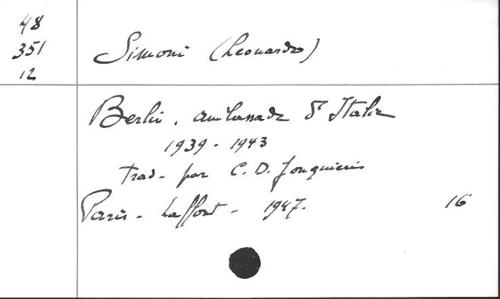 48
351
12
Simoni (Leonardo)
Berlin, ambassade d'Italie
1939-1943
Trad. par C. D. Jonquières
Paris - Laffont - 1947.
16